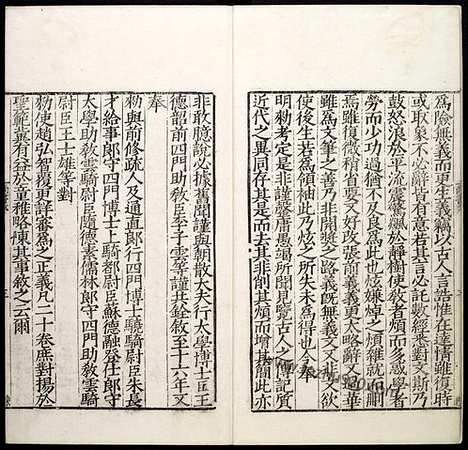 爲險無義而更生義竊以古人言誥惟在達情雖復時
或取象不必辭皆有意若其言必託數經悉對文斯乃
鼓怒浪於平流震驚飆於靜樹使教者煩而多惑學者
勞而少功過猶不及良爲此也炫嫌焯之煩雜就而刪
焉雖復微稍省要又好改張前義義更太略辭又過華
雖爲文筆之善乃非開奬之路義既無義文又非文欲
使後生若爲領袖此乃炫之所失未爲得也今奉
明勑考定是非謹罄庸愚竭所聞見覽古人之傳記質
近代之異同存其是而去其非削其煩而增其簡此亦
非敢臆説必據舊聞謹與朝散大夫行太學博士臣王
德韶前四門助教臣李子雲等謹共銓敘至十六年又
奉
勑與前修疏人及通直郎行四門博士驍騎尉臣朱長
才給事郎守四門博士上騎都尉臣蘇德融登仕郎守
太學助教雲騎尉臣隨德素儒林郎守四門助教雲騎
尉臣王士雄等對
勑使趙弘智覆更詳審爲之正義凡二十卷庶對揚於
聖範冀有益於童稚略陳其事敘之云爾